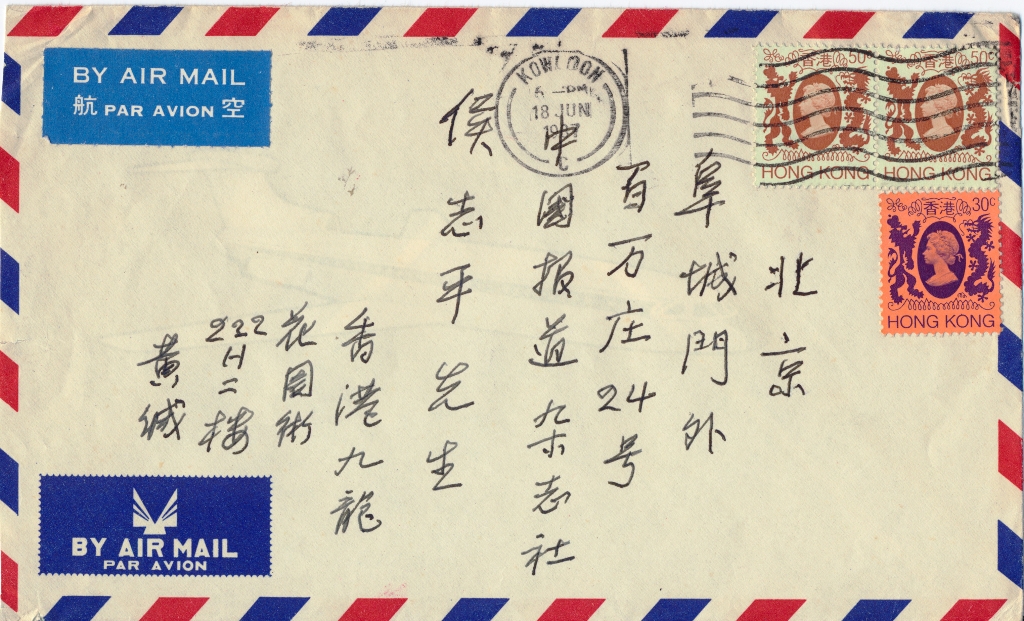 BY AIR MAIL
航 PAR AVION 空
KOWLOON
18 JUN
C
香港 50c
HONG KONG
香港 50c
HONG KONG
香港 30c
HONG KONG
北京
阜城門外
百万庄24号
中國报道杂志社
侯志平先生
香港九龍
花园街
222H二楼
黄
BY AIR MAIL
PAR AVION